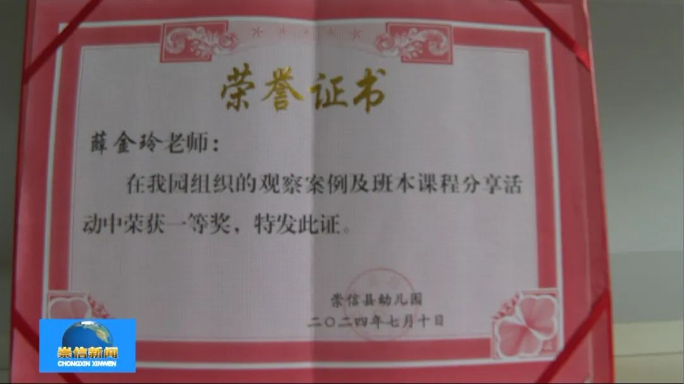 荣誉证书
薛金玲老师：
在我园组织的观察案例及班本课程分享活
动中荣获一等奖，特发此证。
崇信县幼儿园
二〇二四年七月十日
崇信新闻
CHONGXIN XINWEN